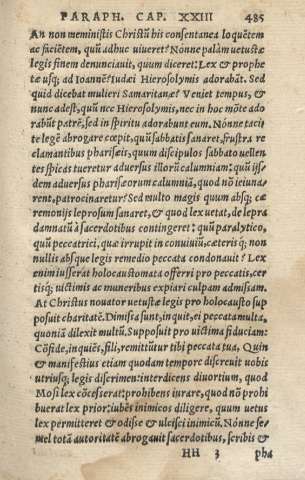 PARAPH. CAP. XXIII 485
An non meministis Christũ his consentanea loquẽtem
ac faciẽtem, quũ adhuc uiueret? Nónne palàm uetustæ
legis finem denunciauit, quum diceret: Lex & prophe
tæ usq; ad Ioannẽ? Iudæi Hierosolymis adorabãt. Sed
quid dicebat mulieri Samaritanæ? Veniet tempus, &
nunc adest, quũ nec Hierosolymis, nec in hoc mõte ado
rabũt patrẽ, sed in spiritu adorabunt eum. Nónne taci
te legẽ abrogare cœpit, quũ sabbatis sanaret, frustra re
clamantibus pharisæis, quum discipulos sabbato uellen
tes spicas tueretur aduersus illorũ calumniam: quũ ijs-
dem aduersus pharisæorum calumniã, quod nõ ieiuna
rent, patrocinaretur? Sed multo magis quum absq; cæ
remonijs leprosum sanaret, & quod lex uetat, de lepra
damnatũ à sacerdotibus contingeret: quũ paralytico,
quũ peccatrici, quæ irrupit in conuiuiũ, cæteris q; non
nullis absque legis remedio peccata condonauit? Lex
enim iusserat holocaustomata offerri pro peccatis, cer
tisq; uictimis ac muneribus expiari culpam admissam.
At Christus nouator uetustæ legis pro holocausto sup
posuit charitatẽ. Dimissa sunt, inquit, ei peccata multa,
quoniã dilexit multũ. Supposuit pro uictima fiduciam:
Cõfide, inquiẽs, fili, remittũtur tibi peccata tua. Quin
& manifestius etiam quodam tempore discreuit uobis
utriusq; legis discrimen: interdicens diuortium, quod
Mosi lex cõcesserat: prohibens iurare, quod nõ prohi
buerat lex prior: iubẽs inimicos diligere, quum uetus
lex permitteret & odisse & ulcisci inimicũ. Nónne se-
mel totã autoritatẽ abrogauit sacerdotibus, scribis &
HH 3 pha